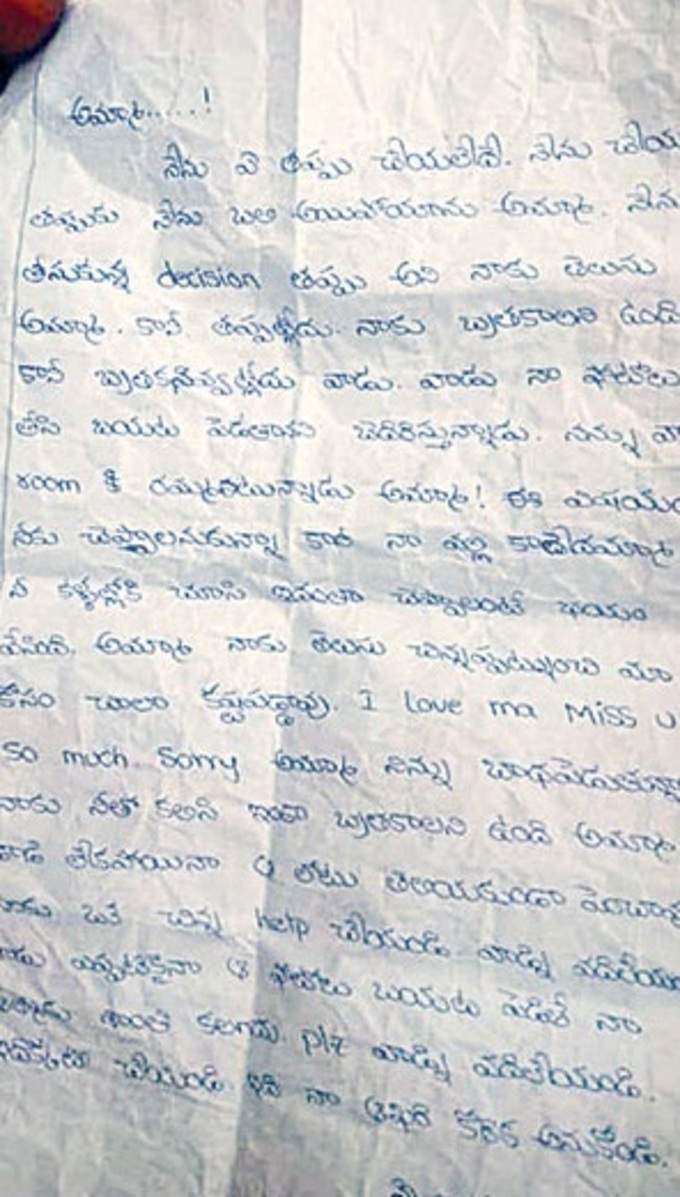 అమ్మా.....!
నేను ఏ తప్పు చేయలేదే. నేను చేయ
తప్పుకు నేను బలి అయిపోయాను అమ్మా. నేను
తీసుకున్న decision తప్పు అని నాకు తెలుసు
అమ్మా. కానీ తప్పట్లేదు. నాకు బ్రతకాలని ఉంది
కానీ బ్రతకనివ్వట్లేదు వాడు. వాడు నా ఫోటోలు
తీసి బయట పెడతానని బెదిరిస్తున్నాడు. నన్ను వా
room కి రమ్మంటున్నాడు అమ్మా! ఈ విషయం
నీకు చెప్పాలనుకున్నా కానీ నా వల్ల కాలేదమ్మా
నీ కళ్ళల్లోకి చూసి ఇదంతా చెప్పాలంటే భయం
వేసింది. అమ్మా నాకు తెలుసు చిన్నప్పట్నుంచి మా
కోసం చాలా కష్టపడ్డావు. I love ma Miss u
so much. Sorry అమ్మా నిన్ను బాధపెడుతున్నా
నాకు నీతో కలిసి ఇంకా బ్రతకాలని ఉంది అమ్మా
డాడీ లేకపోయినా ఆ లోటు తెలియకుండా పెంచావు
నాకు ఒక చిన్న help చేయండి. వాడ్ని వదిలేయ
వాడు ఎప్పటికైనా ఆ ఫోటోలు బయట పెడితే నా
శాంతి కలగదు. plz వాడ్ని వదిలేయండి.
చేయండి. ఇది నా ఆఖరి కోరిక అనుకోండి.